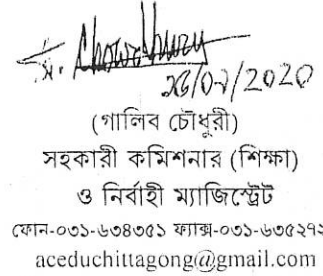 Chowdhury
(গালিব চৌধুরী)
সহকারী কমিশনার (শিক্ষা)
ও নির্বাহী ম্যাজিস্ট্রেট
ফোন-০৩১-৬৩৪৩৫১ ফ্যাক্স-০৩১-৬৩৫২৭২
aceduchittagong@gmail.com